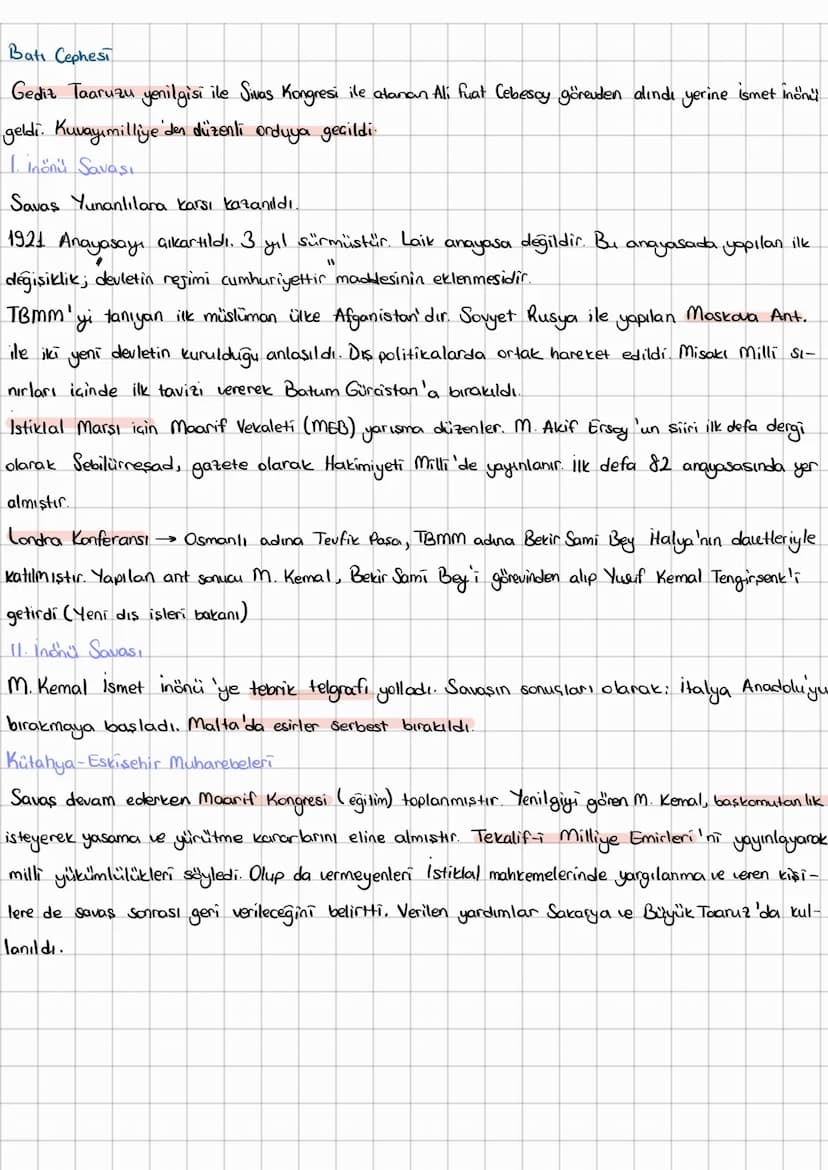 Batı Cephesi
Gediz Taaruzu yenilgisi ile Sivas Kongresi ile atanan Ali fuat Cebesoy görevden alındı yerine ismet inönü
geldi. Kuvayımilliye'den düzenli orduya geçildi.
I. inönü Savası
Savaş Yunanlılara karsı kazanıldı.
1921 Anayasayı çıkartıldı. 3 yıl sürmüstür. Laik anayasa değildir. Bu anayasada yapılan ilk
değişiklik; devletin rejimi cumhuriyettir" maddesinin eklenmesidir.
TBMM'yi tanıyan ilk müslüman ülke Afganistan'dır. Sovyet Rusya ile yapılan Moskova Ant.
ile iki yeni devletin kurulduğu anlasıldı. Dış politikalarda ortak hareket edildi. Misakı Milli sı-
nırları içinde ilk tavizi vererek Batum Gürcistan'a bırakıldı.
İstiklal Marsı için Maarif Vekaleti (MEB) yarısma düzenler. M. Akif Ersoy'un siiri ilk defa dergi
olarak Sebilürreşad, gazete olarak Hakimiyeti Milli'de yayınlanır. ilk defa 82 anayasasında yer
almıstır.
Londra Konferansı → Osmanlı adına Tevfik Pasa, TBMM adına Bekir Sami Bey İtalya'nın davetleriyle
katılmıstır. Yapılan ant sonucu M. Kemal, Bekir Sami Bey'i görevinden alıp Yusuf Kemal Tengirşenk'i
getirdi (Yeni dıs işleri bakanı)
II. İnönü Savası
M. Kemal İsmet inönü'ye tebrik telgrafı yolladı. Savasın sonuçları olarak; İtalya Anadolu'yu
bırakmaya başladı. Malta'da esirler serbest bırakıldı.
Kütahya-Eskisehir Muharebeleri
Savaş devam ederken Maarif Kongresi (eğitim) toplanmıstır. Yenilgiyi gören M. Kemal, baskomutanlık
isteyerek yasama ve yürütme kararlarını eline almıstır. Tekalif-i Milliye Emirleri'ni yayınlayarak
milli yükümlülükleri söyledi. Olup da vermeyenleri İstiklal mahkemelerinde yargılanma ve veren kişi-
lere de savaş sonrası geri verileceğini belirtti. Verilen yardımlar Sakarya ve Büyük Taaruz'da kul-
lanıldı.